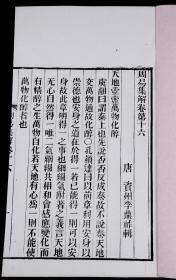 周易集解卷第十六
唐 資州李鼎祚輯
天地壹壺萬物化醇
虞翻曰謂泰上也先說否否反成泰故不說泰天地
交萬物通故化醇〇孔穎達曰以前章利用安身以
崇德也安身之道在於得一若己能得一則可以安
身故此章明得一之事也絪縕氣附著之義言天地
无心自然得一唯二氣絪縕共相和會感應變化而
有精醇之生萬物自化若天地有心為一則不能使
萬物化醇者也